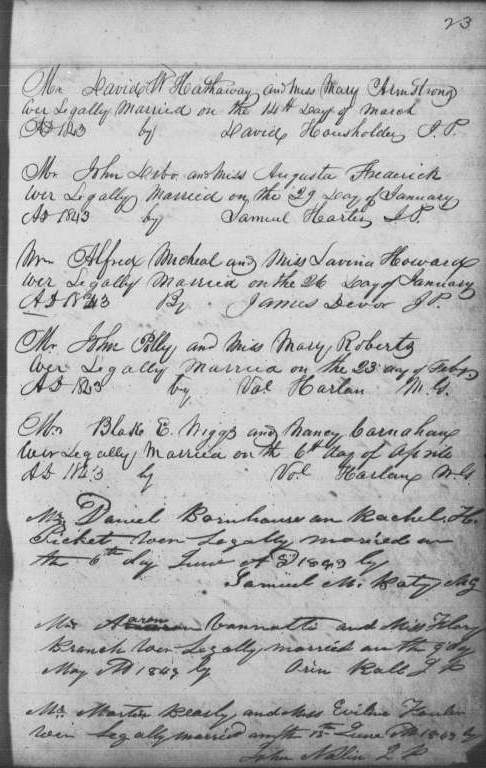 23
Mr David W Hathaway and Miss Mary Armstrong
Wer Legally Married on the 14th Day of March
AD 1843 by David Housholder J.P.
Mr John and Miss Augusta Frederick
Wer Legally Married on the 29 Day of January
AD 1843 by Samuel Harter J.P.
Mr Alfred Micheal and Miss Lavina Howard
Wer Legally Married on the 26 Day of January
AD 1843 By James Devor J.P.
Mr John Polly and Miss Mary Roberts
Wer Legally Married on the 23 day of Feby
AD 1843 by Val Harlan M.G.
Mr Blake E. Wiggs and Nancy Carnahan
Wer Legally Married on the 6th day of
AD 1843 by Val Harlan M.G.
Mr Daniel Barnhouse an Rachel. H.
Picket Wer Legally married on
the 6th dy June AD 1843 by
Samuel M. Baty MG
Mr Aaron Vannatti and Miss
Branch Wer Legally married on the dy
May AD 1843 by Orin Ball J P
Mr Martin Bearly and Miss Eviline
Wer Legally married on the 13th June AD 1843 by
John Nalin J P